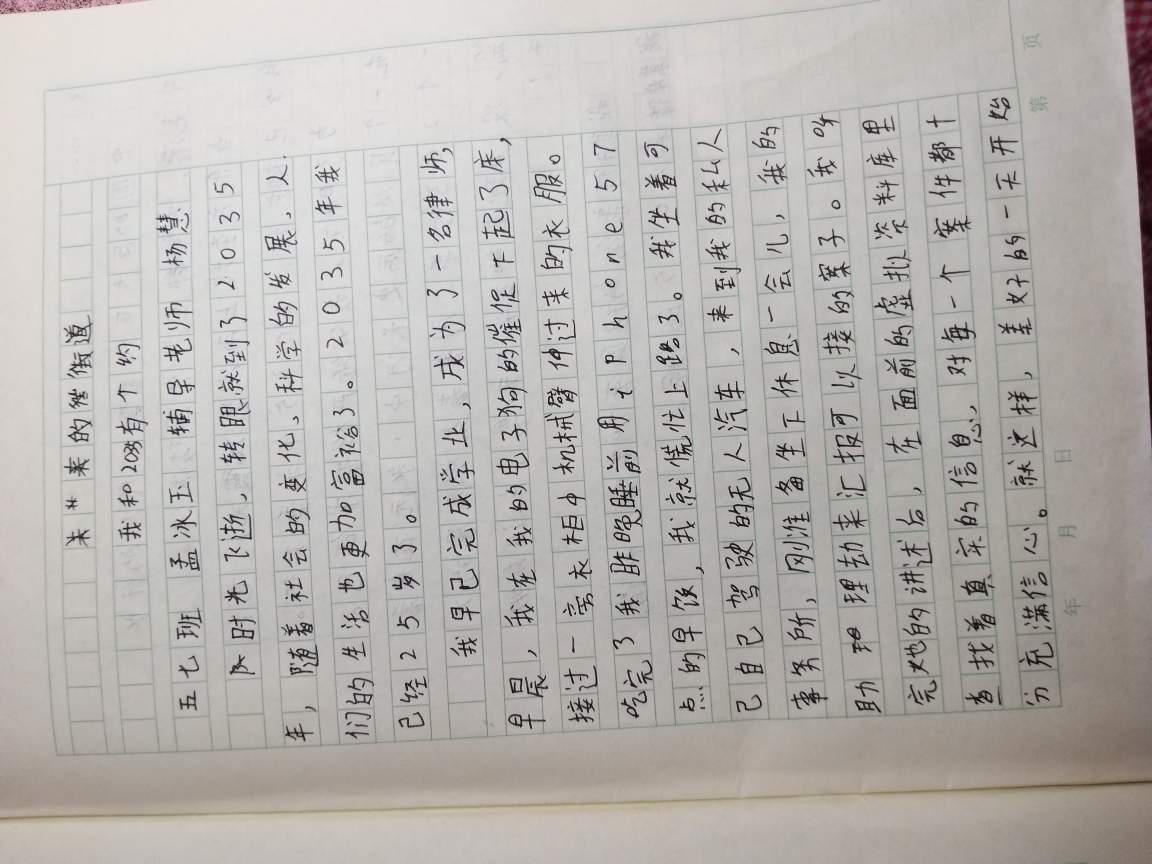 未来的街道
我和2035有个约
五七班 孟冰玉 辅导老师 杨慧
时光飞逝，转眼就到了2035
年，随着社会的变化、科学的发展、人
们的生活也更加富裕了。2035年我
已经25岁了。
我早已完成学业，成为了一名律师，
早晨，我在我的电子狗的催促下起了床，
接过一旁衣柜中机械臂伸过来的衣服。
吃完了我昨晚睡前用iPhone57
点的早饭，我就慌忙上路了。我坐着可
己自己驾驶的无人汽车，来到我的私人
事务所，刚准备坐下休息一会儿，我的
助理劫来汇报可以接的案子。我听
完她的讲述后，在面前的虚拟资料库里
查找着真实的信息，对每一个案件都十
分充满信心。就这样，美好的一天开始
年 月 日
第 页